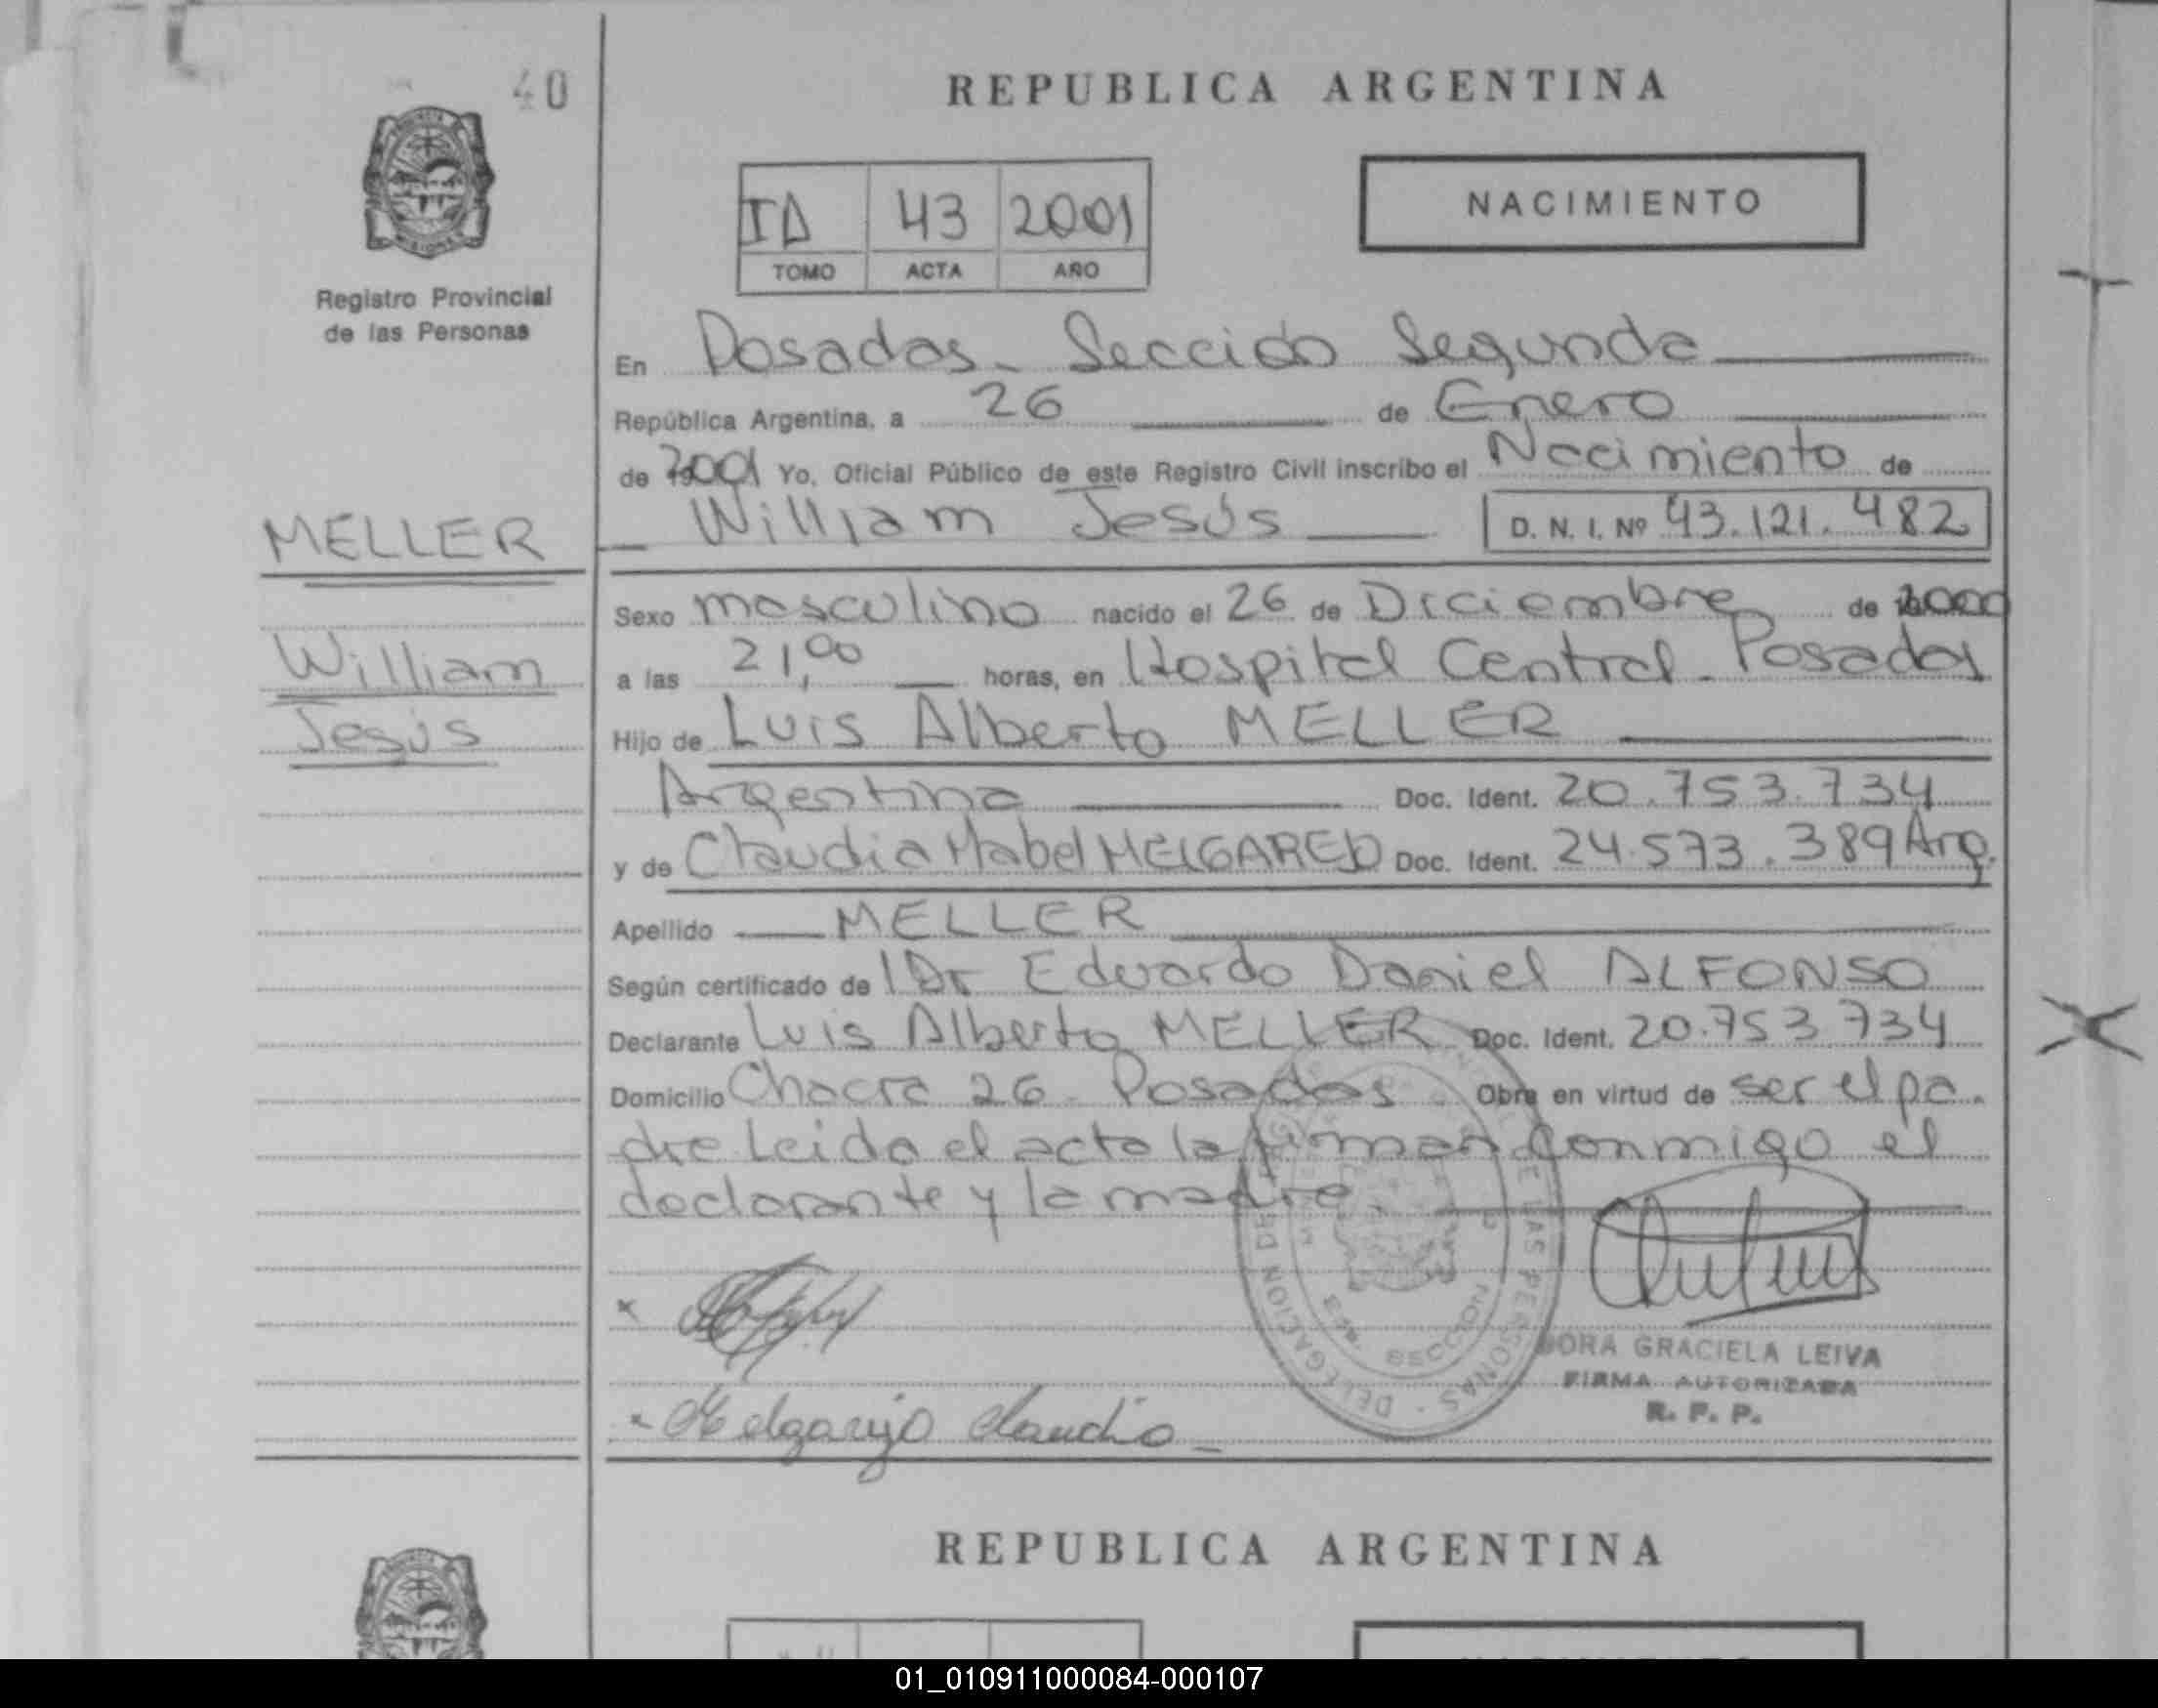 40
REPUBLICA ARGENTINA
NACIMIENTO
ID 43 2001
TOMO ACTA AÑO
Registro Provincial
de las Personas
En Posadas - Sección Segunda
República Argentina, a 26 de Enero
de 2001 Yo, Oficial Público de este Registro Civil inscribo el Nacimiento de
William Jesús D. N. I. Nº 43.121.482
MELLER
William
Jesús
Sexo masculino nacido el 26 de Diciembre de 2000
a las 21,00 horas, en Hospital Central - Posadas
Hijo de Luis Alberto MELLER
Argentina Doc. Ident. 20.753.734
y de Claudia Mabel MELGAREJO Doc. Ident. 24.573.389 Arg.
Apellido MELLER
Según certificado de l Dr Eduardo Daniel ALFONSO
Declarante Luis Alberto MELLER Doc. Ident. 20.753.734
Domicilio Chacra 26 - Posadas Obra en virtud de ser el pa-
dre Leida el acta la firman conmigo el
declarante y la madre.
DELEGACION DE LAS PERSONAS
SECCION
DORA GRACIELA LEIVA
FIRMA AUTORIZADA
R. P. P.
Melgarejo Claudia
REPUBLICA ARGENTINA
01_010911000084-000107